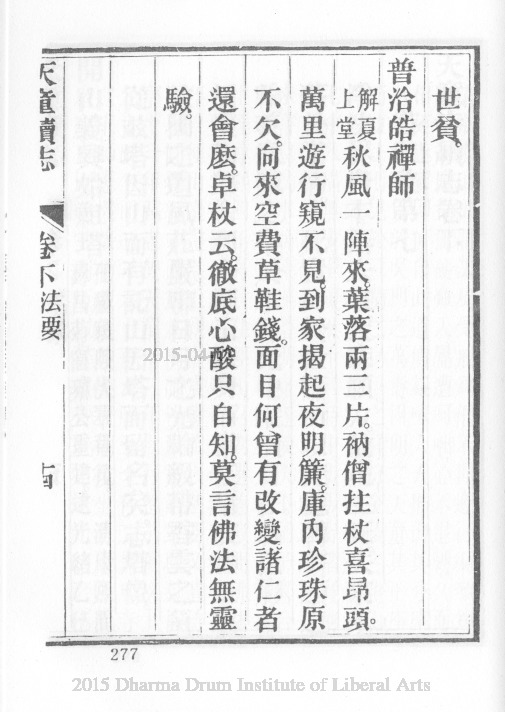 世貧。
普洽皓禪師
解夏上堂秋風一陣來。葉落兩三片。衲僧拄杖喜昻頭。
萬里遊行窺不見。到家揭起夜明簾。庫內珍珠原
不欠。向來空費草鞋錢。面目何曾有改變。諸仁者
還會麽。卓杖云。徹底心酸只自知。莫言佛法無靈
驗。
天童續志 卷下法要 十四
2015-04-
277
2015 Dharma Drum Institute of Liberal Arts